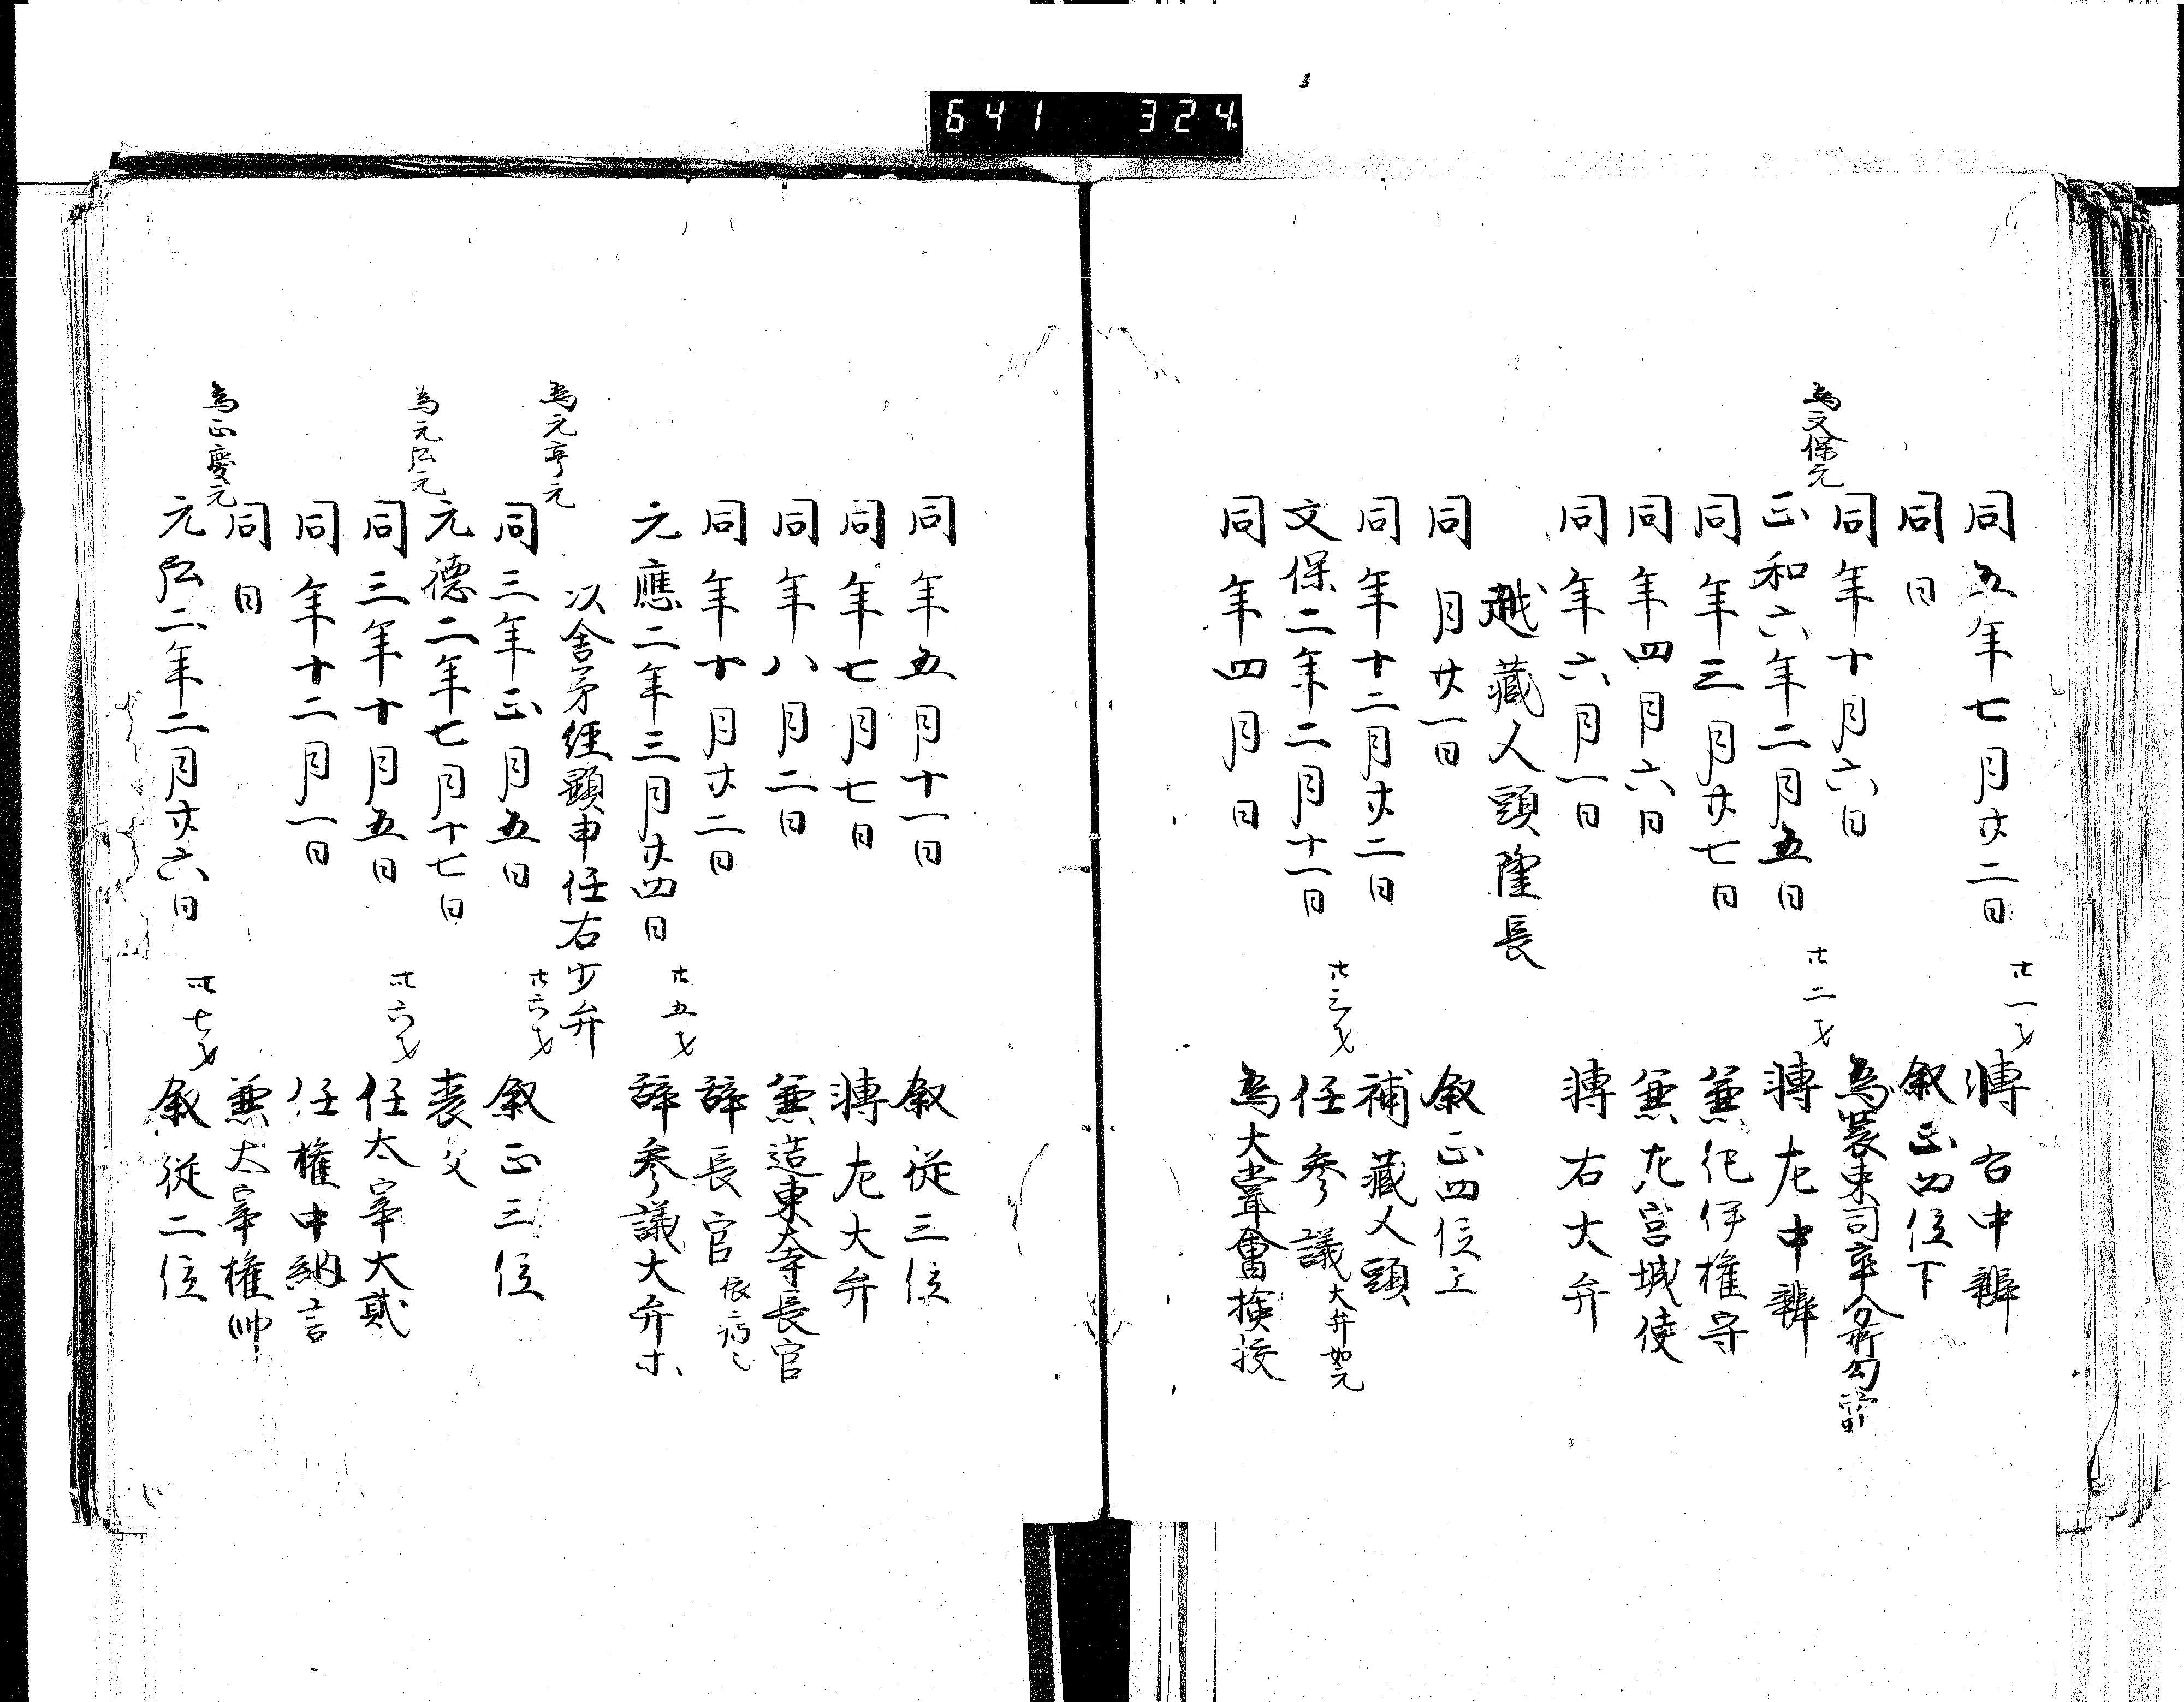 641 324
同五年七月廿二日 廿一才 轉右中辨
同日 叙正四位下
同年十月六日 為装束司率分所勾當
為文保元
正和六年二月五日 廿二才 轉左中辨
同年三月廿七日 兼紀伊權守
同年四月六日 兼左宮城使
同年六月一日 轉右大弁
越藏人頭隆長
同月廿一日 叙正四位上
同年十二月廿二日 補藏人頭
文保二年二月十一日 廿三才 任参議大弁如元
同年四月日 為大嘗會撿挍
同年五月十一日 叙從三位
同年七月七日 轉左大弁
同年八月二日 兼造東大寺長官
同年十月廿二日 辞長官
元應二年三月廿四日 廿五才 辞参議大弁木
以舎弟經顕申任右少弁
為元亨元
同三年正月五日 廿六才 叙正三位
元德二年七月十七日 喪父
為元弘元
同三年十月五日 卅六才 任太宰大貳
同年十二月一日 任權中納言
同日 兼太宰權帥
為正慶元
元弘二年二月廿六日 卅七才 叙從二位